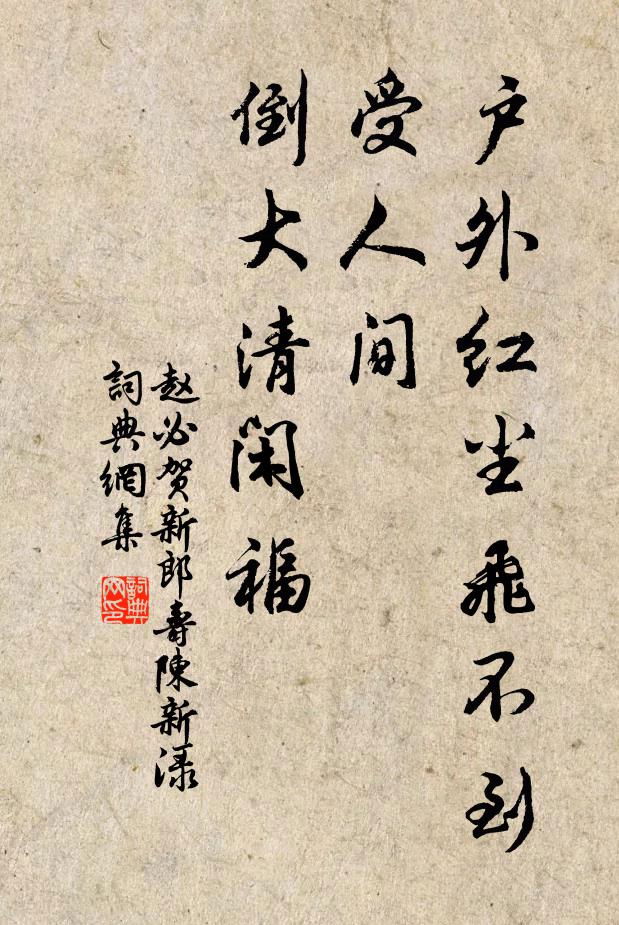 户外红尘飞不到
受人间
倒大清闲福
赵必贺新郎寿陳新渌
詞典網集
詞典
网印